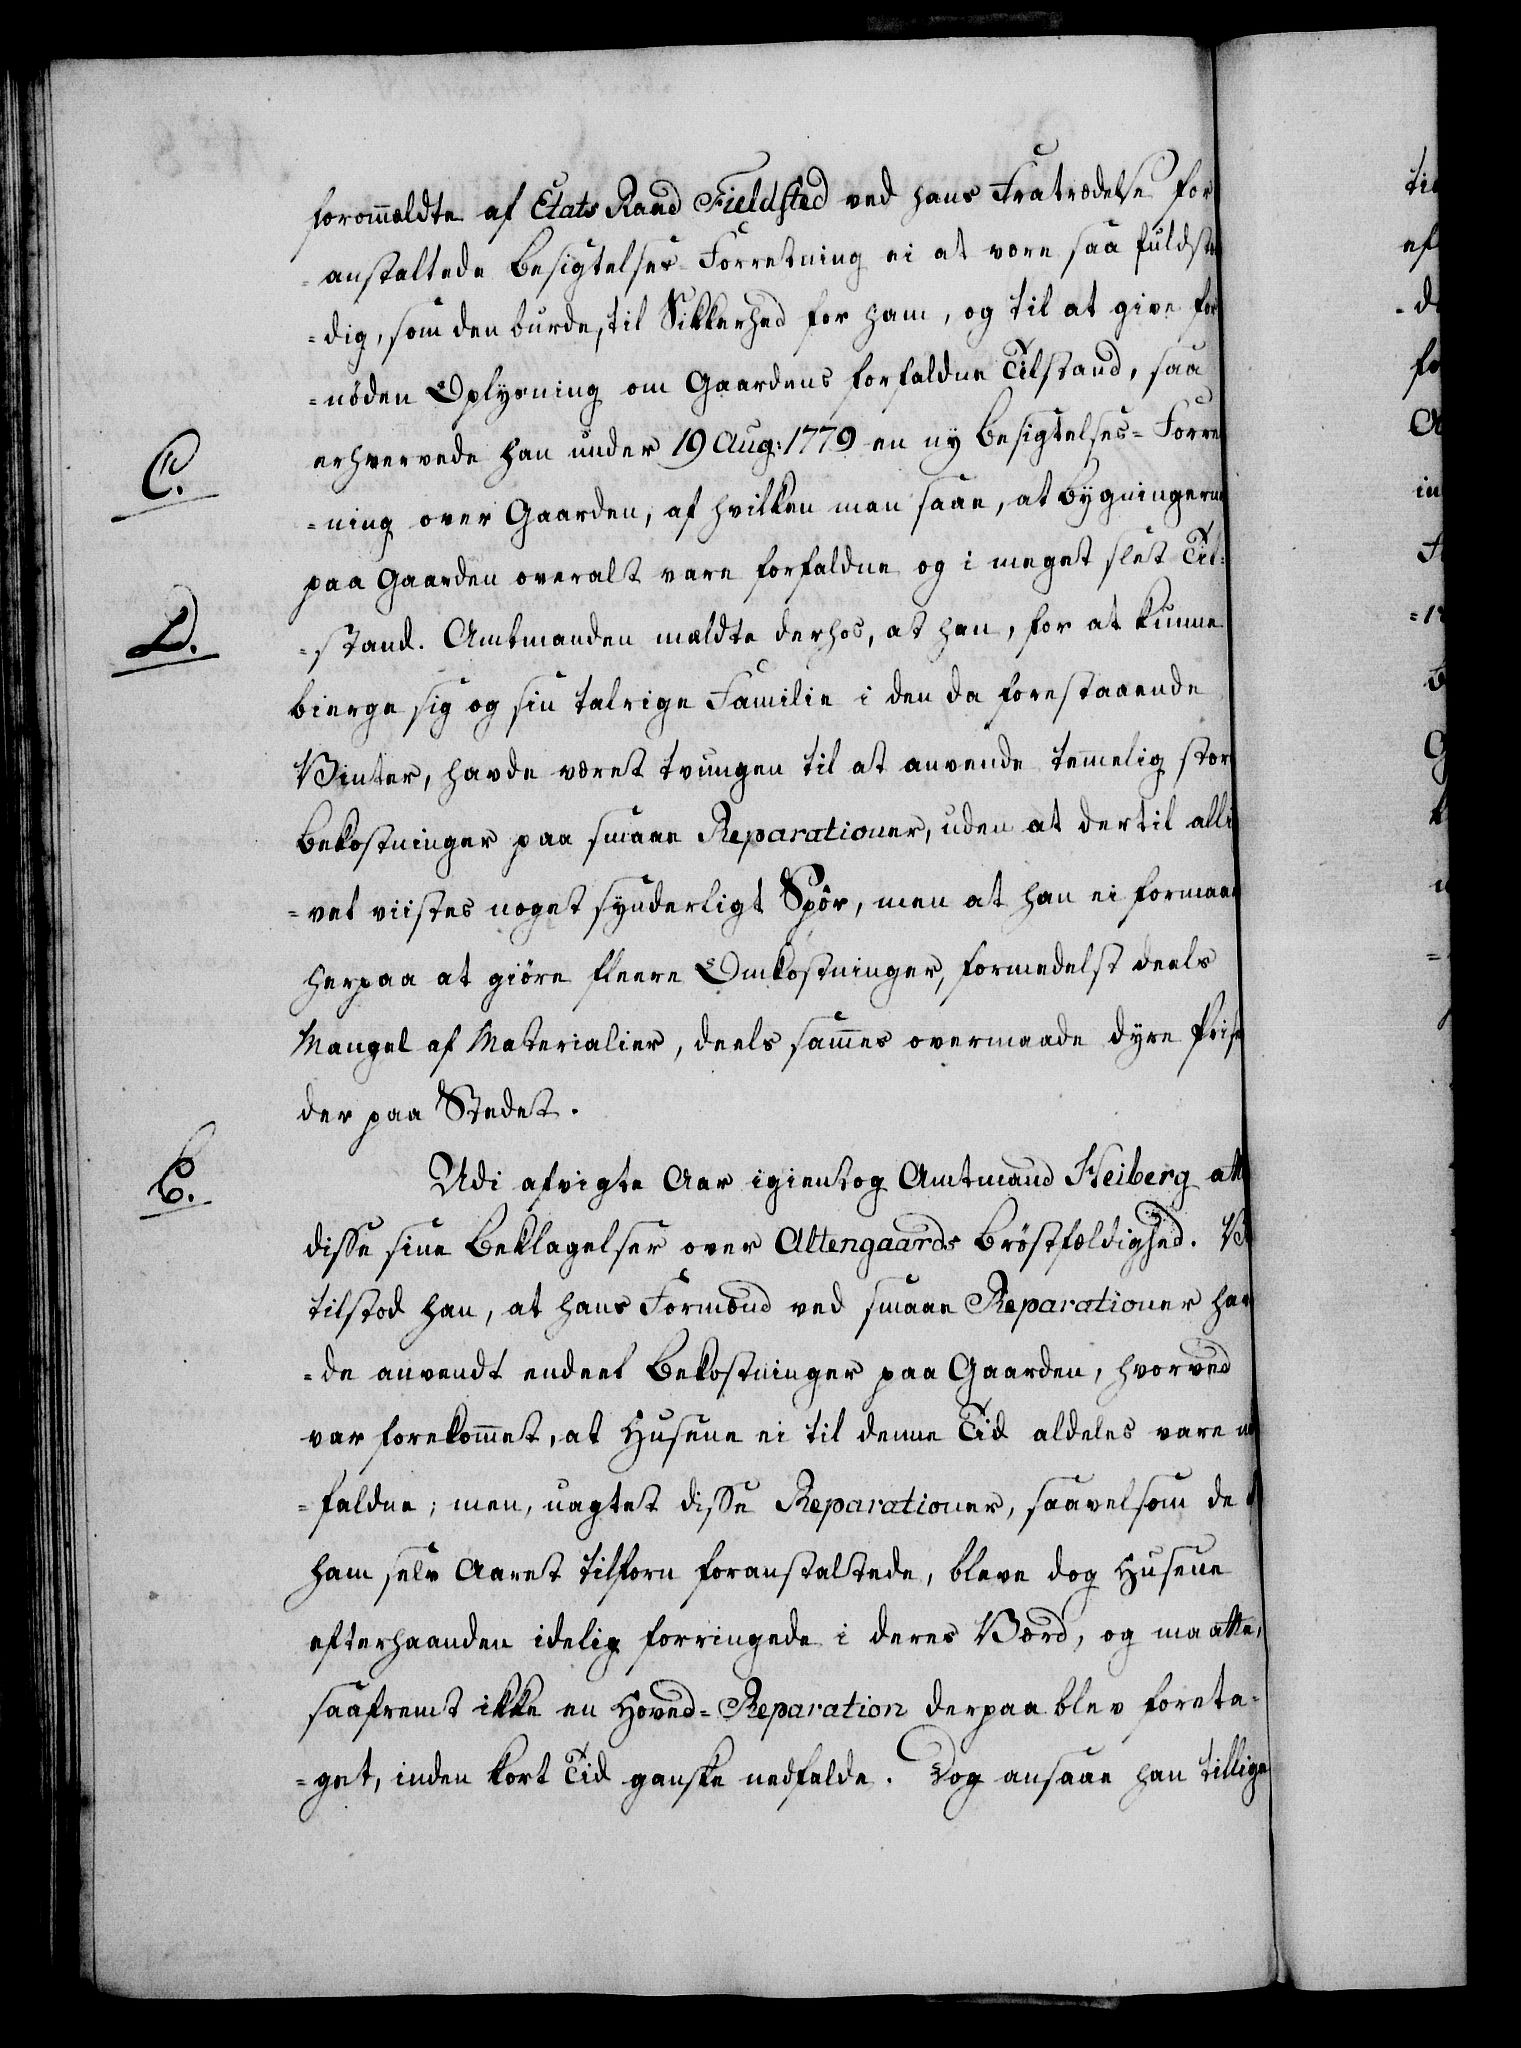 forommeldte af Etats Raad Fieldsted ved hans Fratrædelse for
anstaltede Besigtelses-Forretning ei at være saa fuldstæ
=dig, som den burde, til Sikkerhed for ham, og til at give for
=nöden Oplysning om Gaardens forfaldne Tilstand, saa
C.
erhvervede han under 19 Aug: 1779 en ny Besigtelses=Forre
=ning over Gaarden, af hvilken man saae, at Bygningerne
paa Gaarden overalt vare forfaldne og i meget slet Til=
D.
=stand. Amtmanden meldte derhos, at han, for at kunne
bierge sig og sin talrige Familie i den da forestaaende
Vinter, havde været tvungen til at anvende temmelig stor
Bekostninger paa smaae Reparationer, uden at dertil alli
=vel viistes noget synderligt Spôr, men at han ei formaae
herpaa at giöre fleere Omkostninger, formedelst deels
Mangel af Materialier, deels sammes overmaade dyre Prise
der paa Stedet.
E.
Udi afvigte Aar igientog Amtmand Heiberg att
disse sine Beklagelser over Altengaards Bröstfældighed. V
tilstod han, at hans Formænd ved smaae Reparationer hav
=de anvendt endeel Bekostninger paa Gaarden, hvorved
var forekommet, at Husene ei til denne Tid aldeles vare n
=faldne; men, uagtet disse Reparationer, saavelsom de
ham selv Aaret tilforn foranstaltede, bleve dog Husene
efterhaanden idelig forringede i deres Værd, og maatte,
saafremt ikke en Hoved=Reparation derpaa blev foreta=
=get, inden kort Tid ganske nedfalde. Dog ansaae han tillige